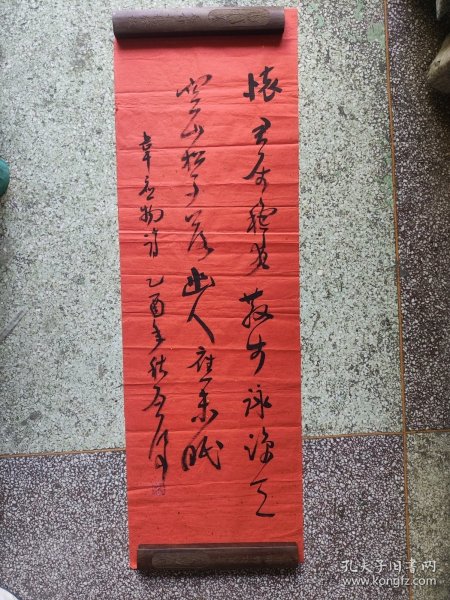 怀君属秋夜散步咏凉天
空山松子落幽人应未眠
韦应物诗乙酉年秋
孔夫子旧书网
www.kongfz.com